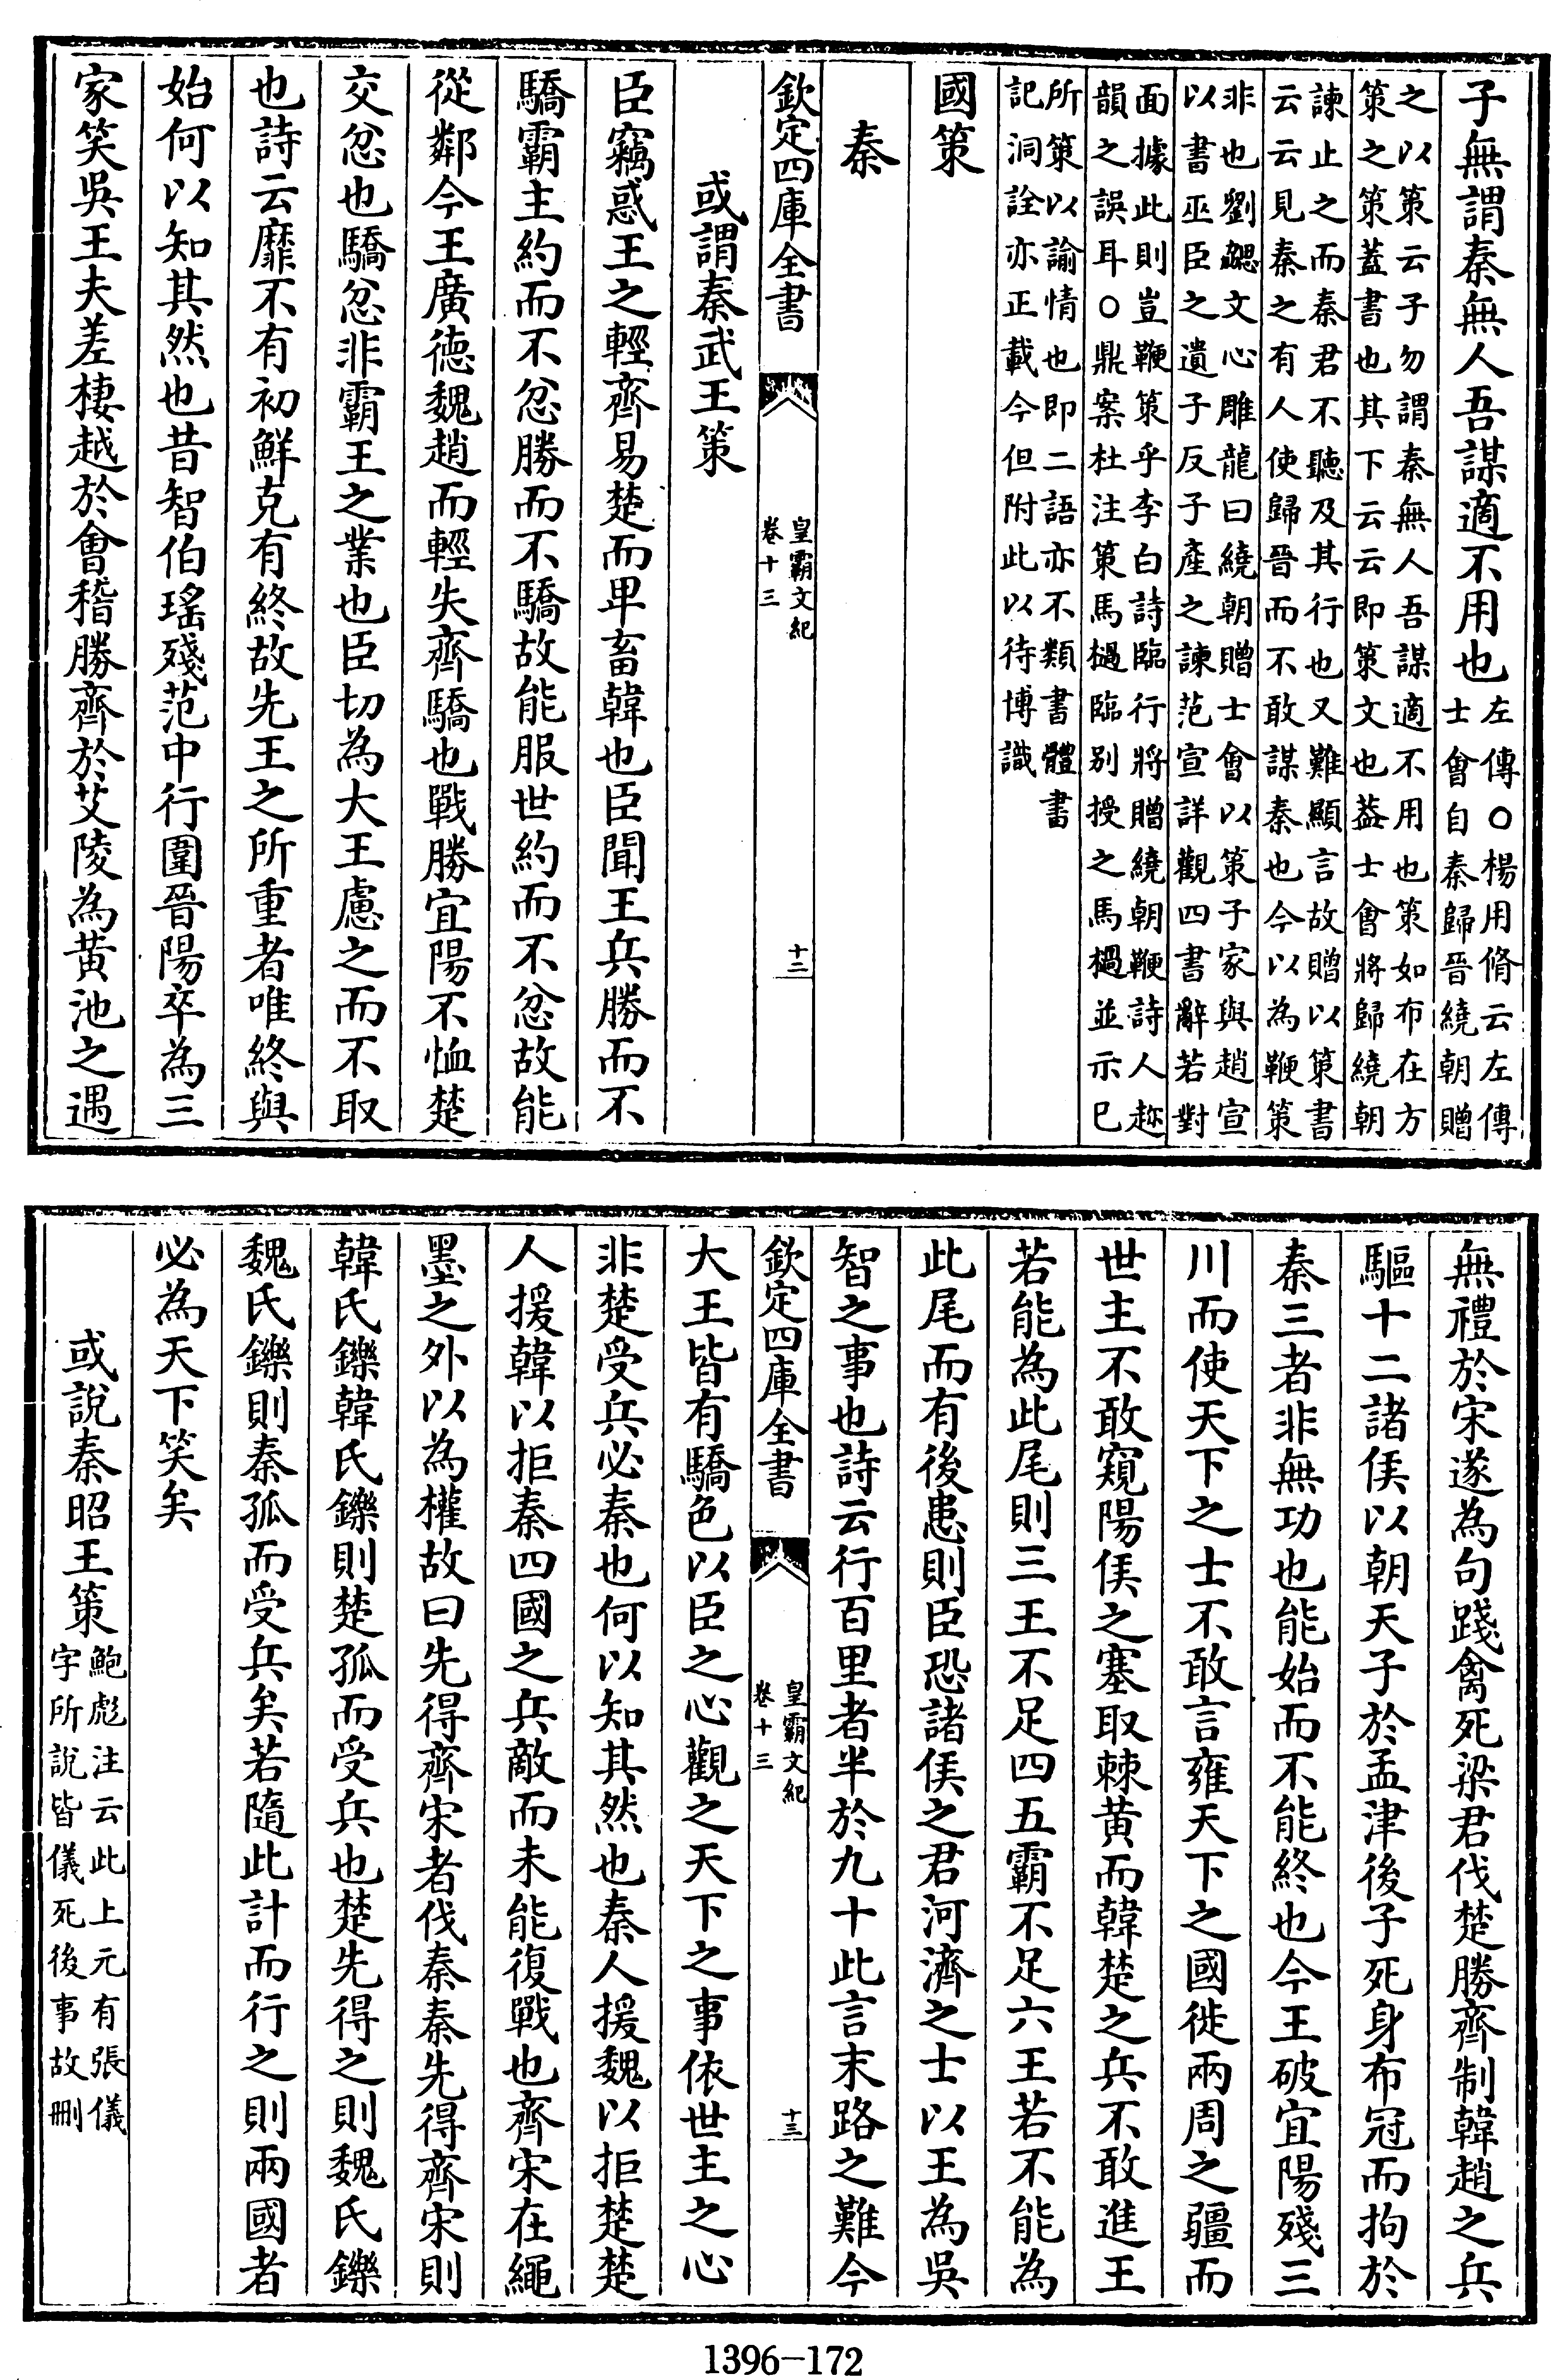 子無謂秦無人吾謀適不用也左傳〇楊用脩云左傳
士會自秦歸晉繞朝贈
之以策云子勿謂秦無人吾謀適不用也策如布在方
策之策蓋書也其下云云即策文也葢士會將歸繞朝
諫止之而秦君不聽及其行也又難顯言故贈以策書
云云見秦之有人使歸晉而不敢謀秦也今以為鞭策
非也劉勰文心雕龍曰繞朝贈士會以策子家與趙宣
以書巫臣之遺子反子產之諫范宣詳觀四書辭若對
面據此則豈鞭策乎李白詩臨行將贈繞朝鞭詩人趂
韻之誤耳〇鼎案杜注策馬檛臨別授之馬檛並示已
所策以諭情也即二語亦不類書體書
記洞詮亦正載今但附此以待博識
國策
秦
欽定四庫全書
皇霸文紀
卷十三
十二
或謂秦武王策
臣竊惑王之輕齊易楚而卑畜韓也臣聞王兵勝而不
驕霸主約而不忿勝而不驕故能服世約而不忿故能
從鄰今王廣德魏趙而輕失齊驕也戰勝宜陽不恤楚
交忿也驕忿非霸王之業也臣切為大王慮之而不取
也詩云靡不有初鮮克有終故先王之所重者唯終與
始何以知其然也昔智伯瑤殘范中行圍晉陽卒為三
家笑吳王夫差棲越於會稽勝齊於艾陵為黃池之遇
無禮於宋遂為句踐禽死梁君伐楚勝齊制韓趙之兵
驅十二諸侯以朝天子於孟津後子死身布冠而拘於
秦三者非無功也能始而不能終也今王破宜陽殘三
川而使天下之士不敢言雍天下之國徙兩周之疆而
世主不敢窺陽侯之塞取棘黃而韓楚之兵不敢進王
若能為此尾則三王不足四五霸不足六王若不能為
此尾而有後患則臣恐諸侯之君河濟之士以王為吳
智之事也詩云行百里者半於九十此言末路之難今
欽定四庫全書
皇霸文紀
卷十三
十三
大王皆有驕色以臣之心觀之天下之事依世主之心
非楚受兵必秦也何以知其然也秦人援魏以拒楚楚
人援韓以拒秦四國之兵敵而未能復戰也齊宋在繩
墨之外以為權故曰先得齊宋者伐秦秦先得齊宋則
韓氏鑠韓氏鑠則楚孤而受兵也楚先得之則魏氏鑠
魏氏鑠則秦孤而受兵矣若隨此計而行之則兩國者
必為天下笑矣
或說秦昭王策鮑彪注云此上元有張儀
字所說皆儀死後事故刪
1396-172